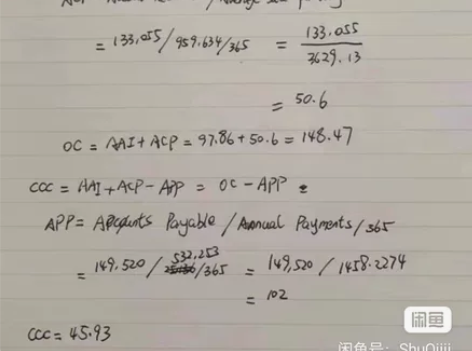 = 133,055/959,634/365 = 133,055 / 2629.13
= 50.6
OC = AAI + ACP = 97.86 + 50.6 = 148.47
CCC = AAI + ACP - APP = OC - APP
APP = Accounts Payable / Annual Payments/365
= 149,520 / 532,253 /365 = 149,520 / 1458.2274
= 102
CCC = 45.93
闲鱼
闲鱼号: ShuQijij